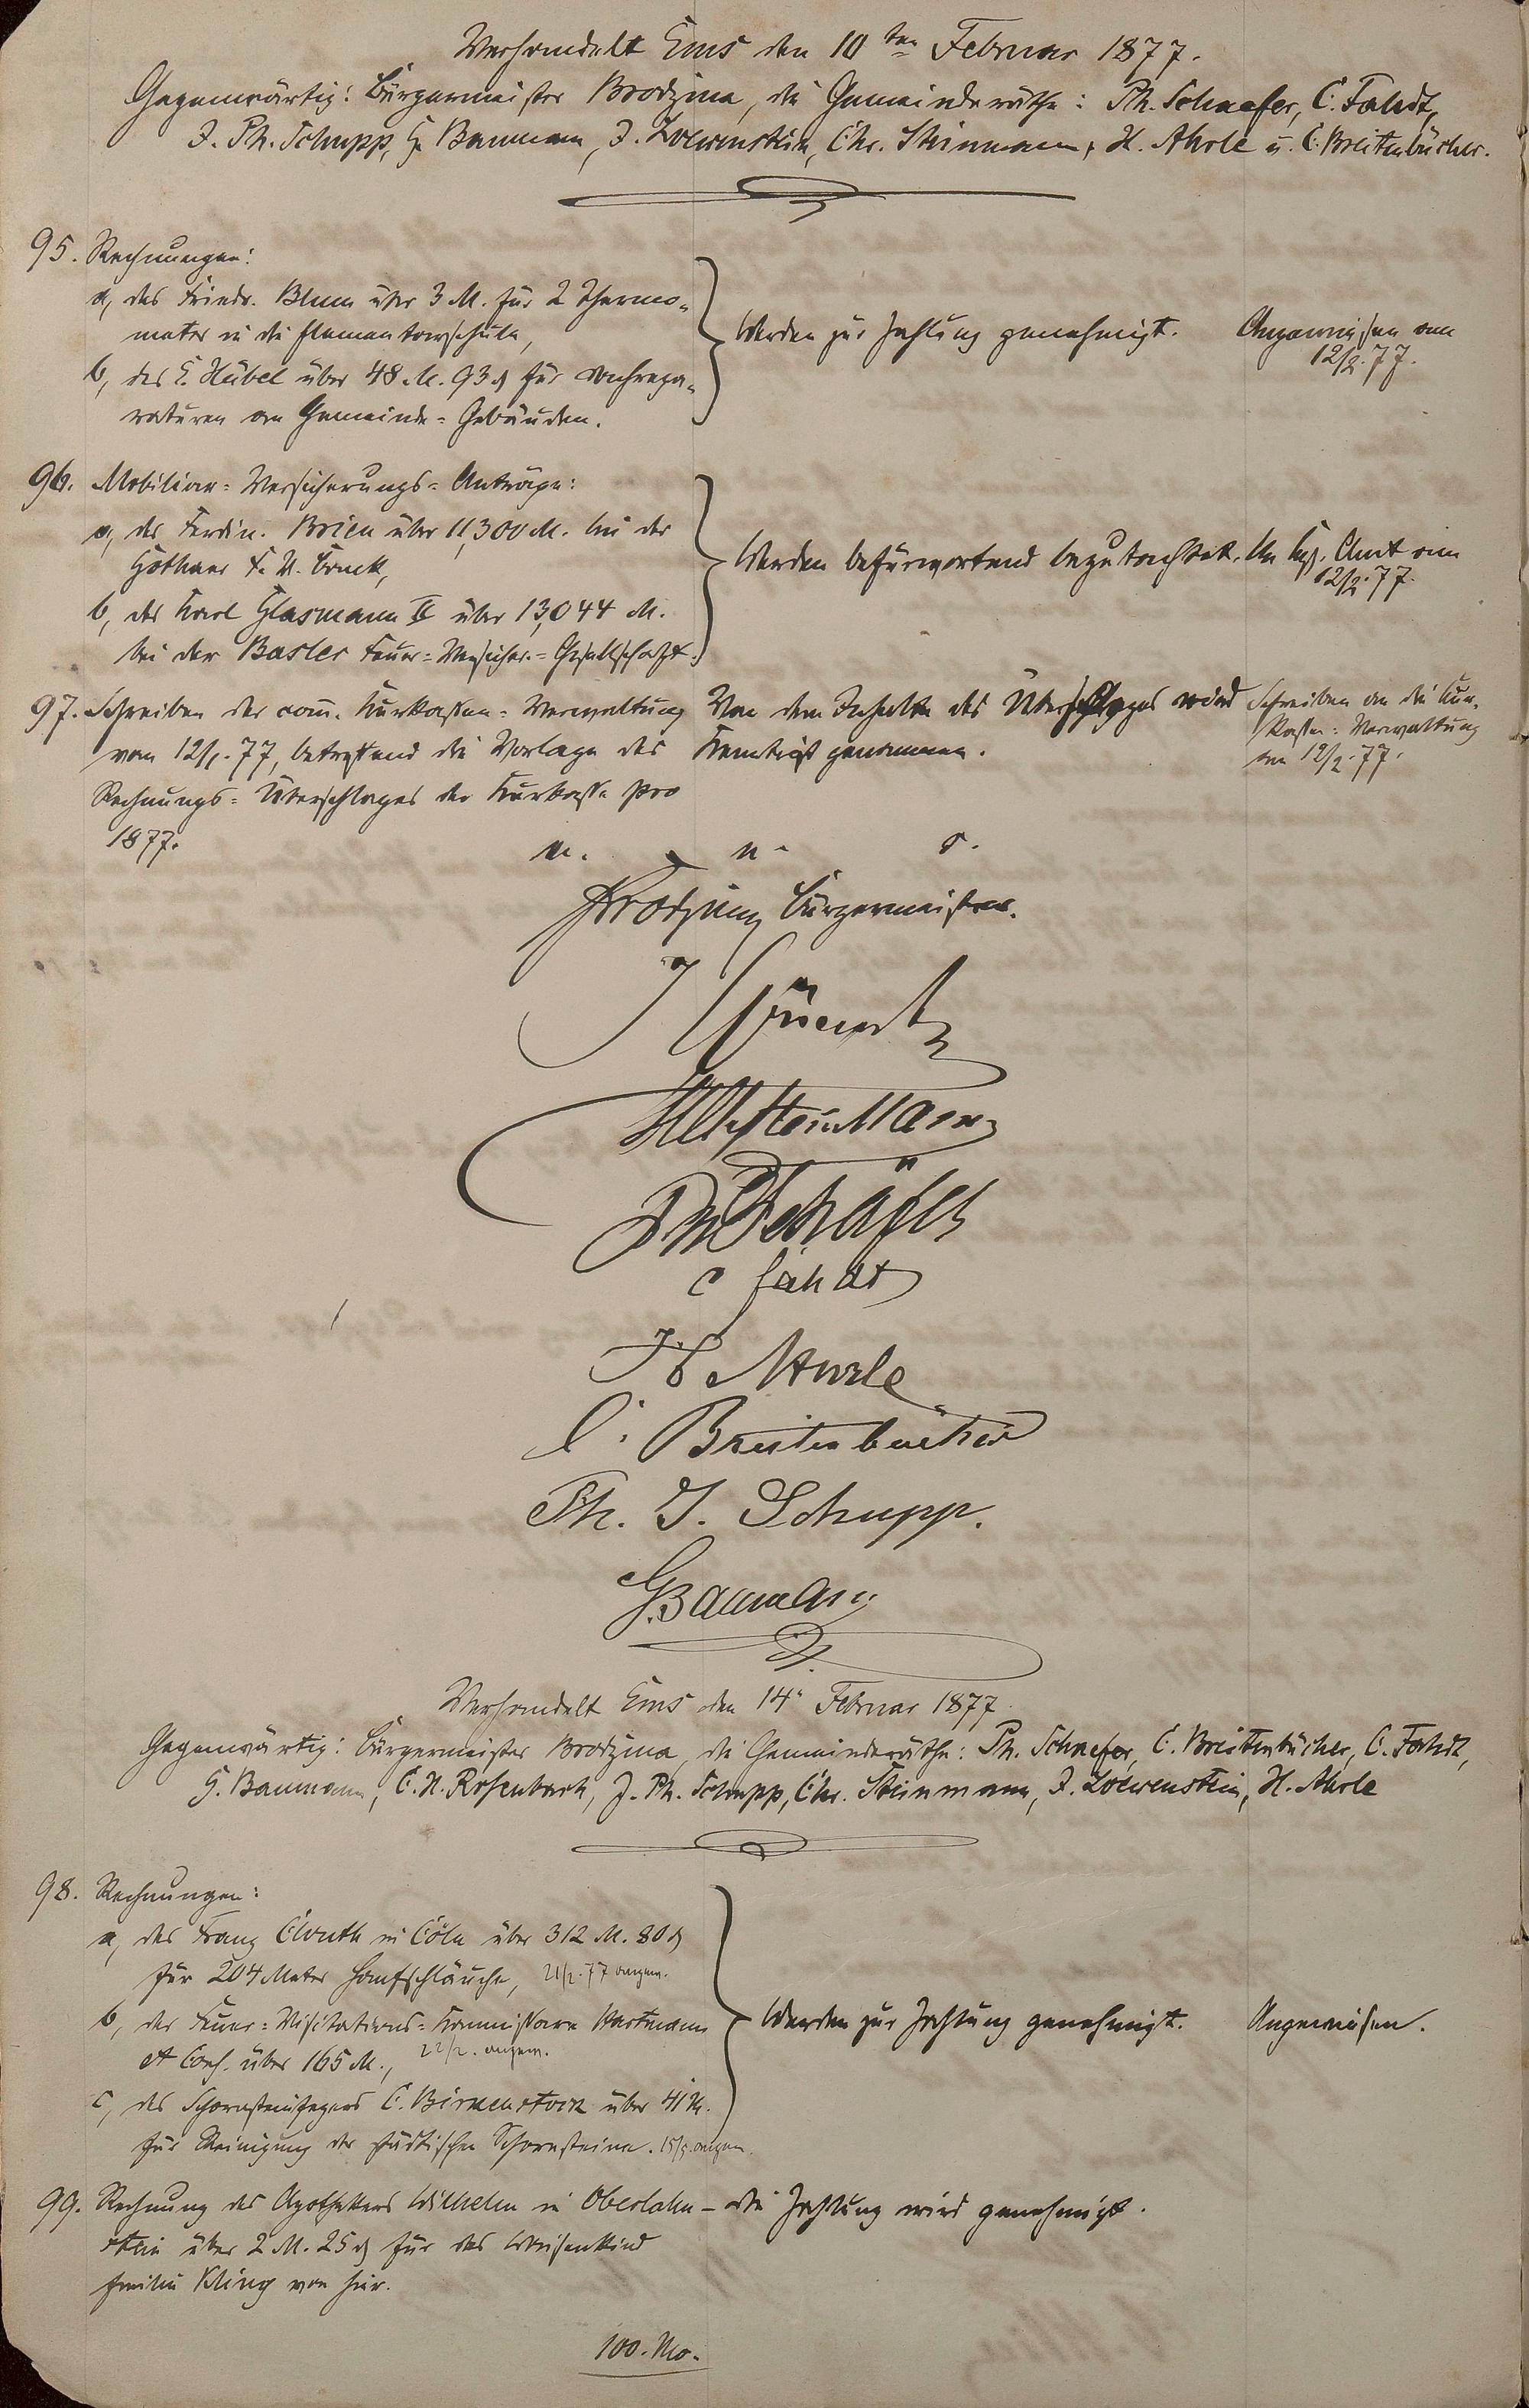 Verhandelt Ems den 10ten Februar 1877.
Gegenwärtig: Bürgermeister Brodzina, die Gemeinderäthe: Ph. Schaefer, C. Fahdt,
J. Ph. Schupp, G. Baumann, J. Loewenstein, Chr. Steinmann, H. Ahrle u. C. Breitenbücher.
95. Rechnungen:
a, des Friedr. Blum über 3 M. für 2 Thermo-
meter in die Elementarschule,
Werden zur Zahlung genehmigt.
Angewiesen am
12/2.77.
b, des E. Hübel über 48 M. 93 ₰ für
raturen an Gemeinde-Gebäuden.
96. Mobiliar-Versicherungs-Anträge:
a, des Ferdin. Brien über 11,300 M. bei der
Gothaer F. V. Bank,
Werden befürwortend begutachtet.
An Kgl. Amt am
12/2.77.
b, des Karl Glasmann II über 13,044 M.
bei der Basler Feuer-Versicher.-Gesellschaft.
97. Schreiben der com. Kurkassen-Verwaltung
vom 12/1.77, betreffend die Vorlage des
Rechnungs-Überschlages der Kurkasse pro
1877.
Von dem Inhalte des Überschlages wird
Kenntniß genommen.
Schreiben an die Kur-
kassen-Verwaltung
am 12/2.77.
v. n. s.
Brodzina Bürgermeister.
Steinmann
Ph Schäfer
C Fahdt
H Ahrle
C. Breitenbücher
Ph. J. Schupp.
G. Baumann
Verhandelt Ems den 14n Februar 1877
Gegenwärtig: Bürgermeister Brodzina, die Gemeinderäthe: Ph. Schaefer, C. Breitenbücher, C. Fahdt,
G. Baumann, C. H. Rosenbach, J. Ph. Schupp, Chr. Steinmann, J. Loewenstein, H. Ahrle
98. Rechnungen:
a, des Franz Clouth in Cöln über 312 M. 80 ₰
für 204 Meter Hanfschläuche, 21/2.77 angew.
b, der Feuer-Visitations-Kommissare Hartmann
et Cons. über 165 M., 22/2. angew.
Werden zur Zahlung genehmigt.
Angewiesen.
c, des Schornsteinfegers C. Birkenstock über 41 M.
für Reinigung der städtischen Schornsteine. angew.
99. Rechnung des Apothekers Wilhelm in Oberlahn-
stein über 2 M. 25 ₰ für das Waisenkind
Emilie Kling von hier.
Die Zahlung wird genehmigt.
100. No.